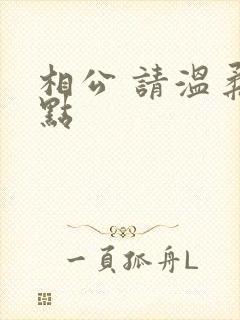 相公 請溫柔
點
一頁孤舟L